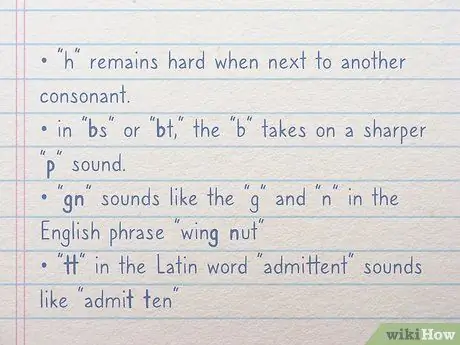 • "h" remains hard when next to another
consonant.
• in "bs" or "bt," the "b" takes on a sharper
"p" sound.
• "gn" sounds like the "g" and "n" in the
English phrase "wing nut"
• "tt" in the Latin word "admittent" sounds
like "admit ten"
wikiHow